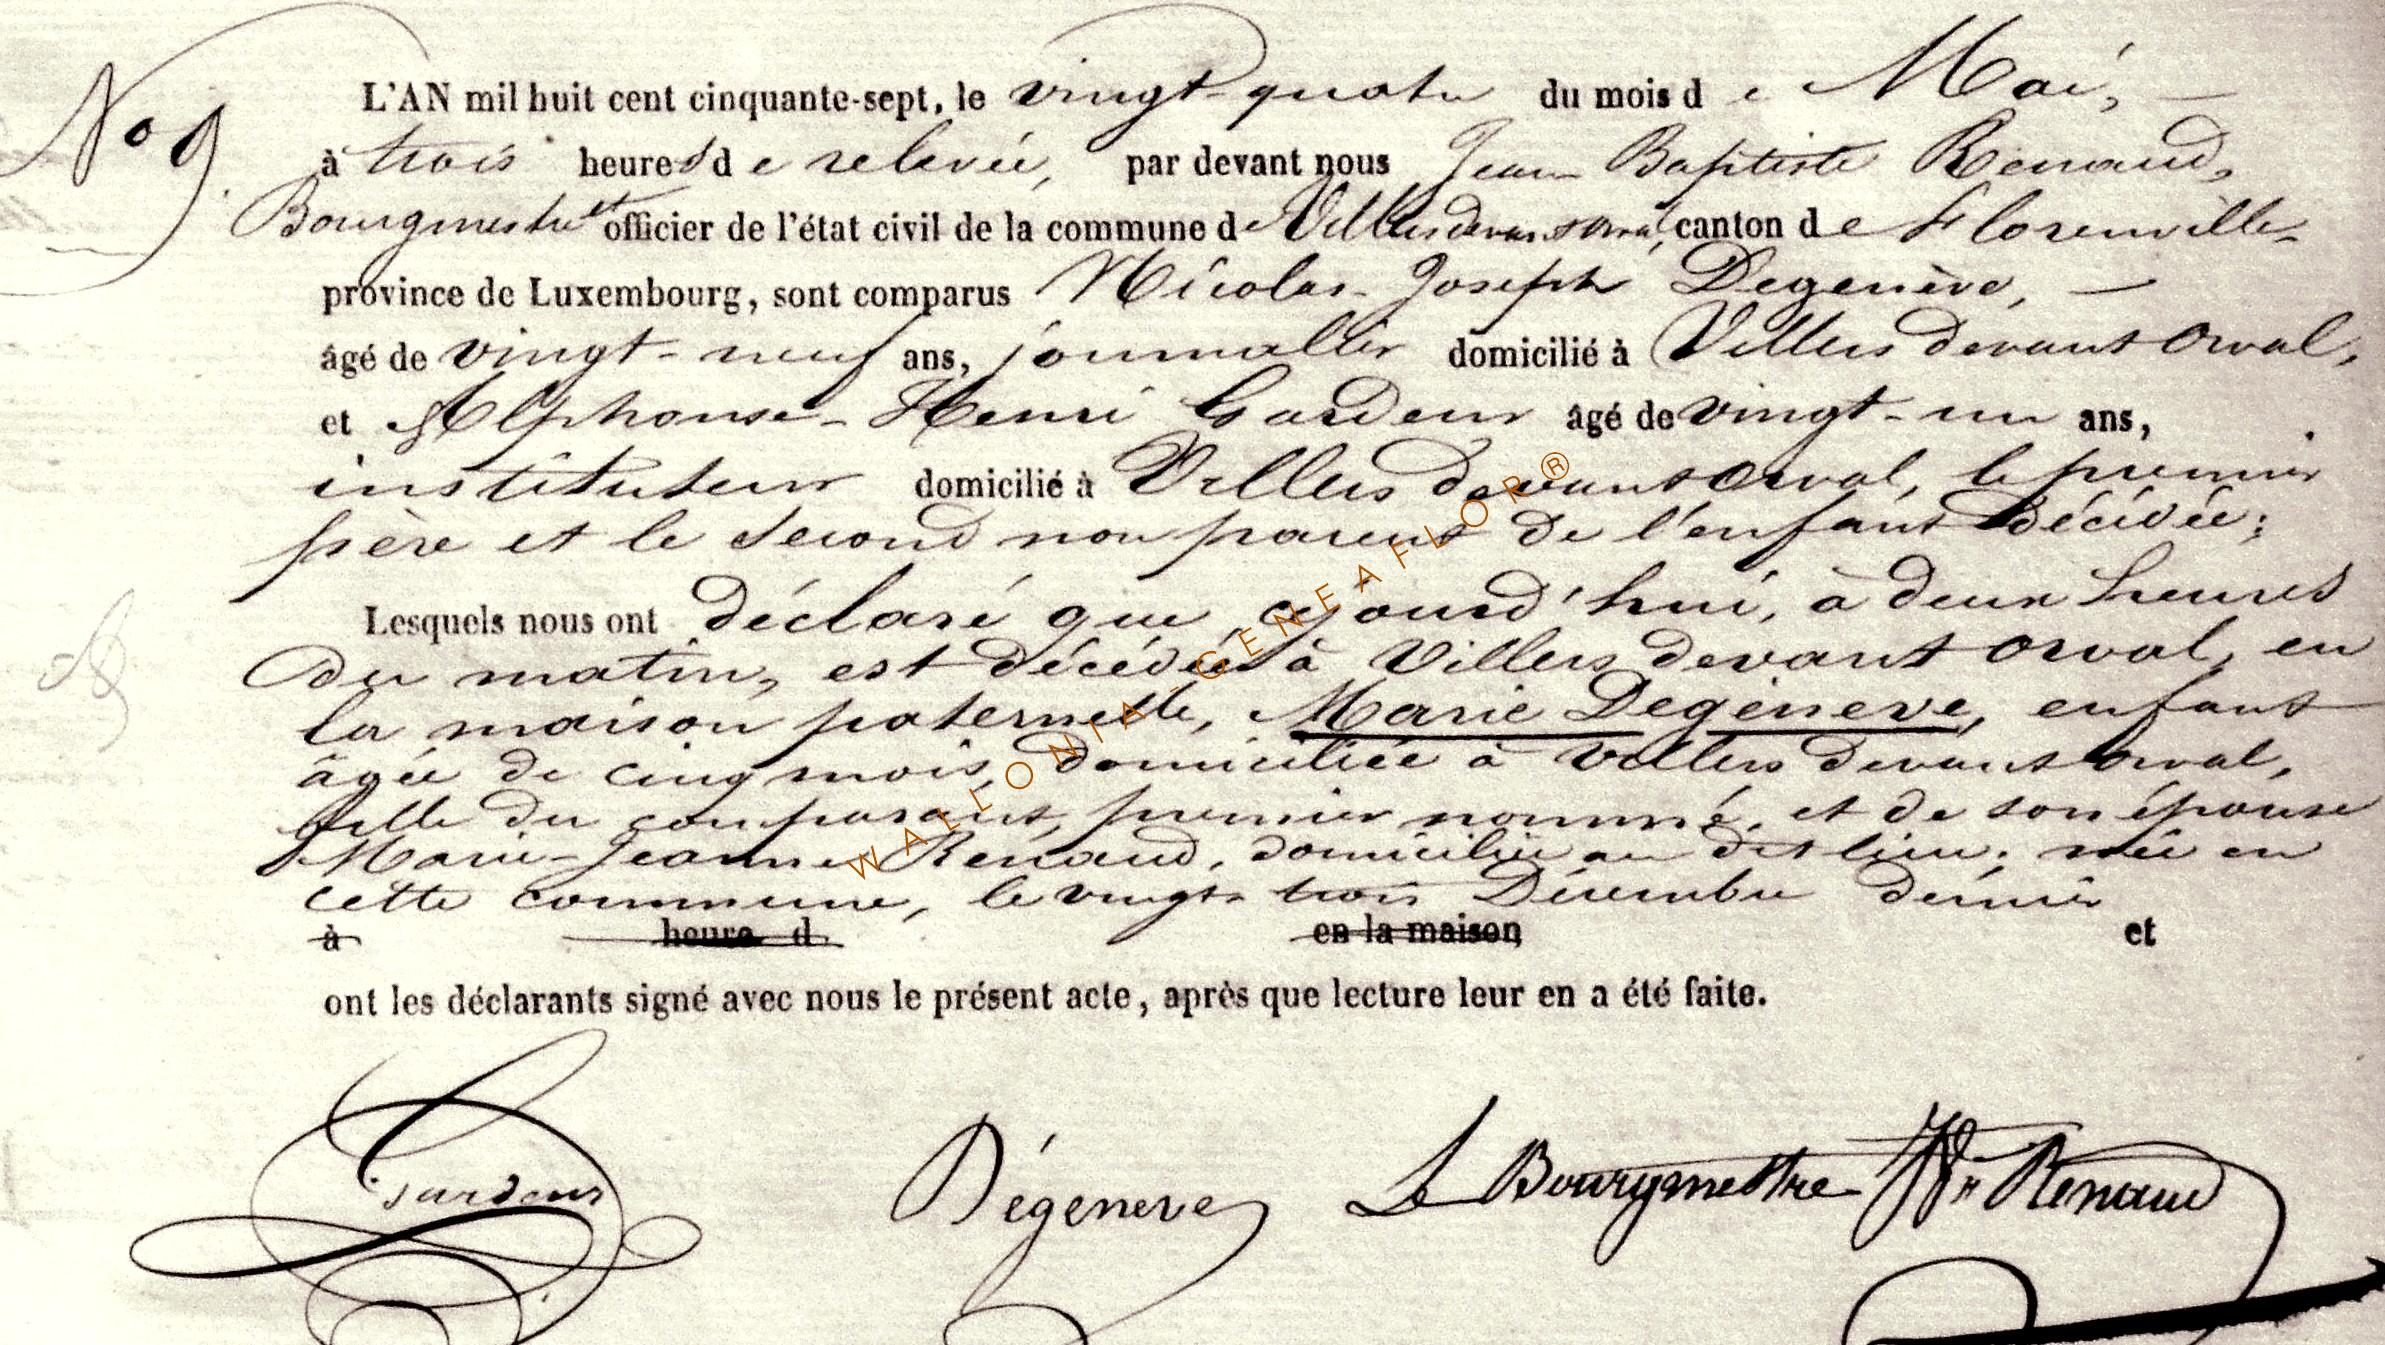 No 9
L'AN mil huit cent cinquante-sept, le vingt-quatre du mois de Mai,
à trois heures de relevée, par devant nous Jean Baptiste Renaud,
Bourgmestre et officier de l'état civil de la commune de Villers devant Orval, canton de Florenville
province de Luxembourg, sont comparus Nicolas-Joseph Degenève,
âgé de vingt-neuf ans, journallier domicilié à Villers devant Orval,
et Alphonse-Henri Gardeur âgé de vingt-un ans,
instituteur domicilié à Villers devant Orval, le premier
père et le second non parent de l'enfant décédée;
Lesquels nous ont déclaré que cejourd'hui, à deux heures
du matin, est décédée à Villers devant Orval, en
la maison paternelle, Marie Degeneve, enfant
âgée de cinq mois, domiciliée à Villers devant Orval,
fille du comparant, premier nommé, et de son épouse
Marie-Jeanne Renaud, domiciliée au dit lieu; née en
cette commune, le vingt-trois Décembre dernier
à heure d en la maison et
ont les déclarants signé avec nous le présent acte, après que lecture leur en a été faite.
Gardeur Dégeneve Le Bourgmestre Renaud
WALLONIA-GENEAFLOR®